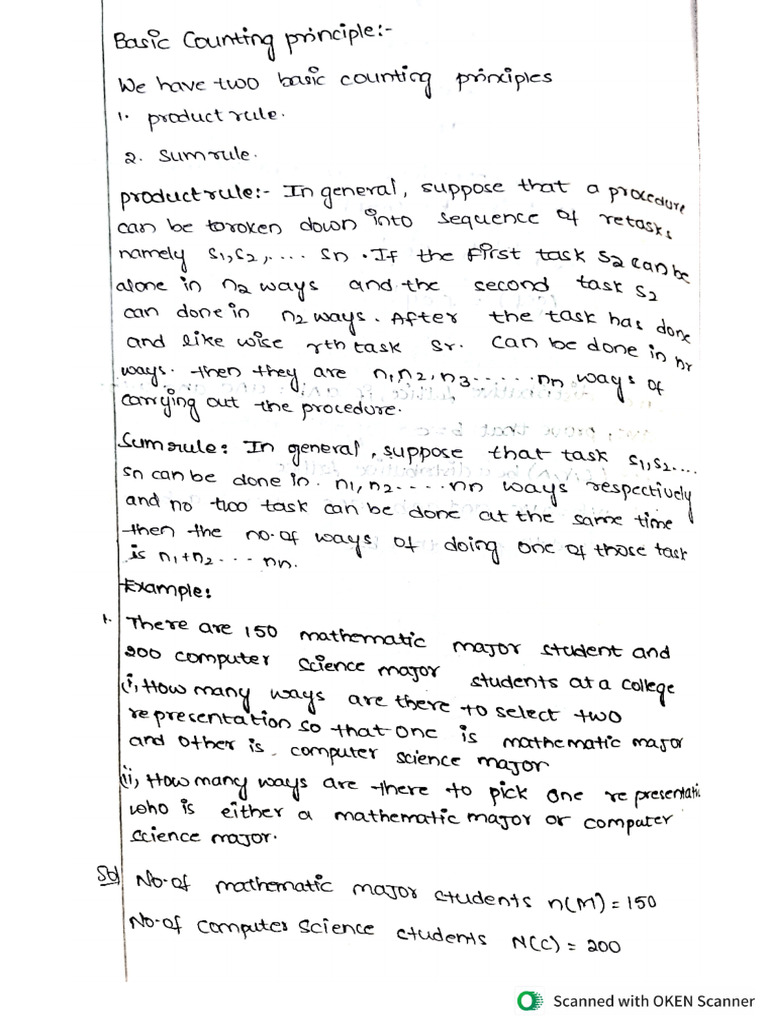 Basic Counting principle:-
We have two basic counting principles
1. product rule.
2. sumrule.
product rule:- In general, suppose that a procedure
can be toroken down into sequence of retasks
namely s1,s2,.... sn. If the first task s2 can be
alone in n2 ways and the second task s2
can done in n2 ways. After the task has done
and like wise rth task sr. can be done in nr
ways. then they are n1,n2,n3......nn ways of
carrying out the procedure.
Sumrule: In general, suppose that task s1,s2....
sn can be done in. n1,n2.....nn ways respectively
and no two task can be done at the same time
then the no.of ways of doing one of those task
is n1+n2... nn.
Example:
1. There are 150 mathematic major student and
200 computer science major students at a college
(i, How many ways are there to select two
representation so that one is mathematic major
and other is computer science major
(ii, How many ways are there to pick one representati
who is either a mathematic major or computer
science major.
Sol No.of mathematic major students n(M) = 150
No.of computer science students N(C) = 200
Scanned with OKEN Scanner